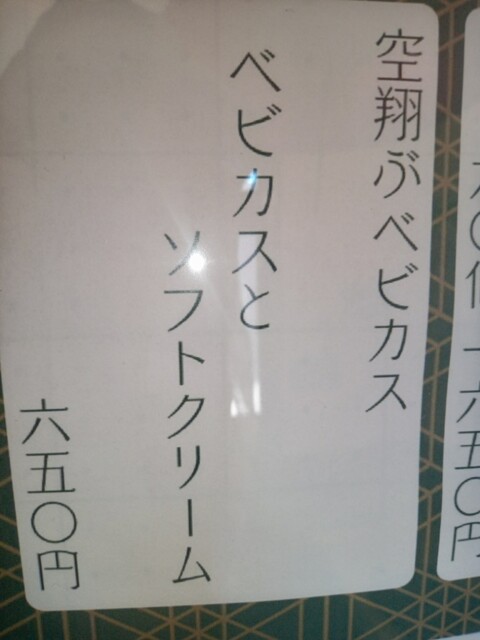 空翔ぶベビカス
ベビカスと
ソフトクリーム
六五〇円
六五〇円